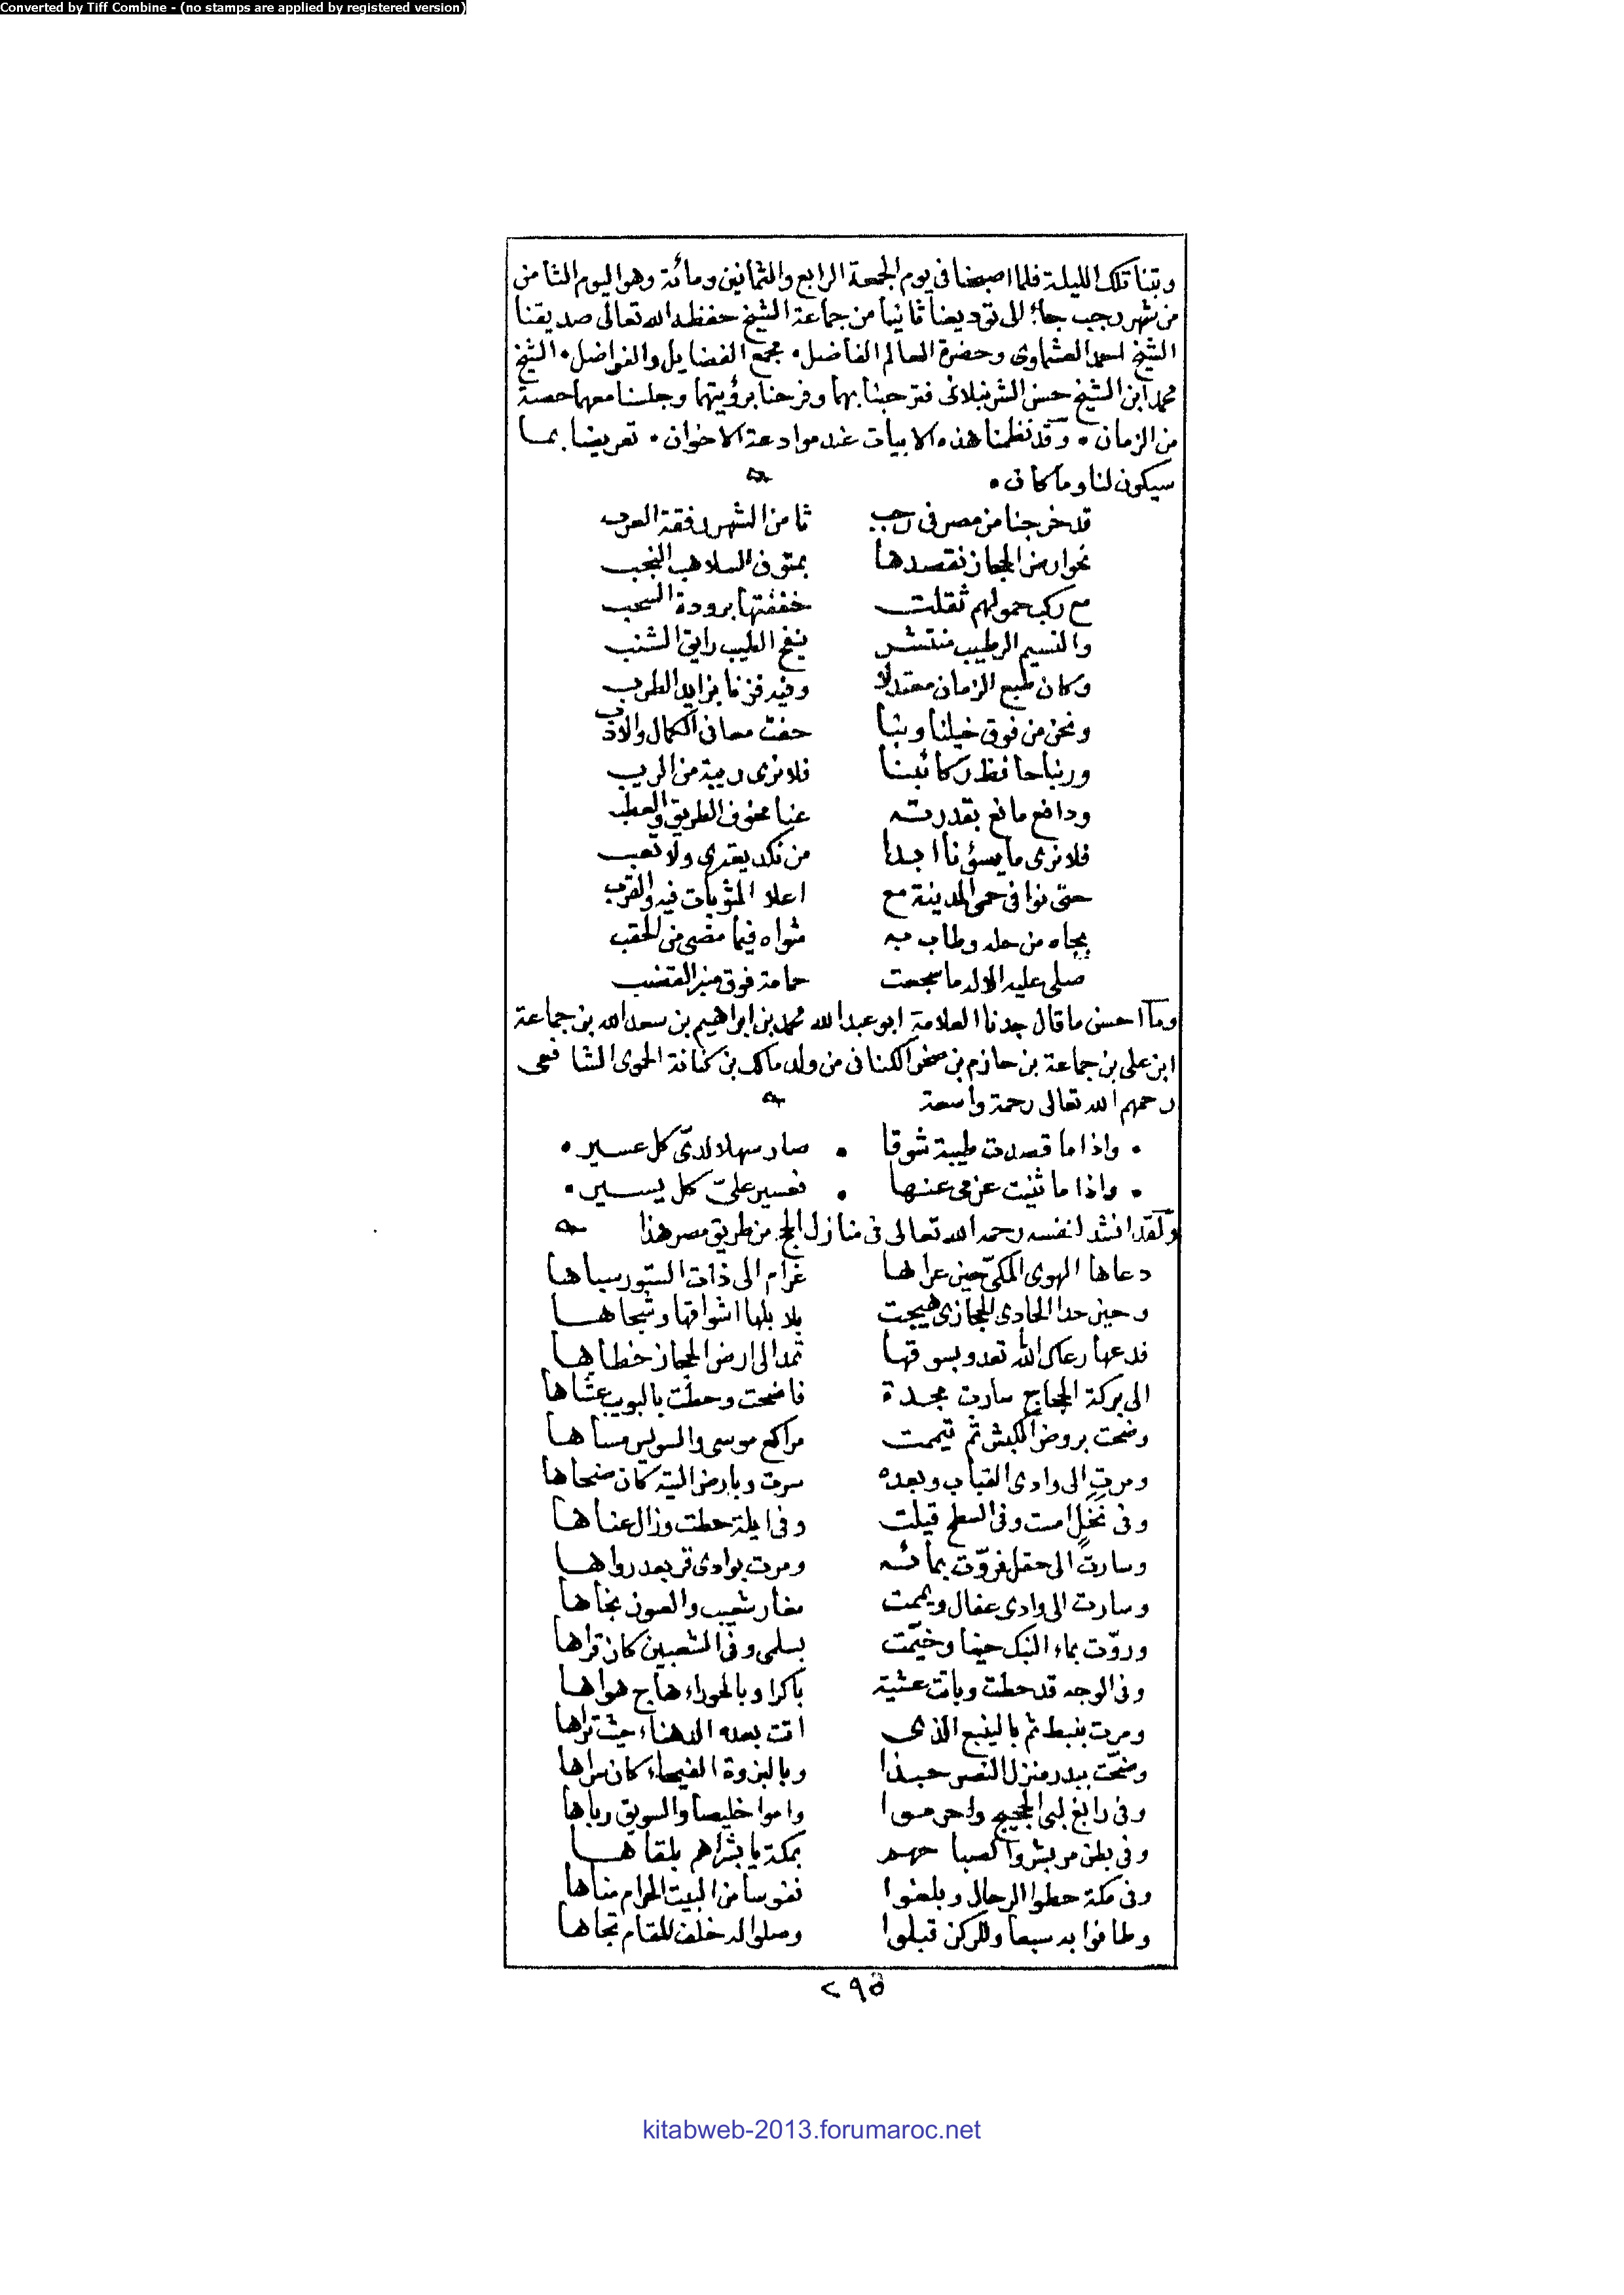 Converted by Tiff Combine - (no stamps are applied by registered version)
وبتنا تلك الليلة فلما اصبحنا فى يوم الجمعة الرابع والثمانين ومائة وهو اليوم الثامن
من شهر رجب جاء الى توديعنا ثانيا من جماعة الشيخ حفظه الله تعالى صديقنا
الشيخ احمد العشماوى وحضرة العالم الفاضل • مجمع الفضايل والفواضل • الشيخ
محمد ابن الشيخ حسن الشرنبلانى فترحبنا بهما وفرحنا برؤيتهما وجلسنا معهما حصة
من الزمان • وقد نظمنا هذه الابيات عند موادعة الاخوان • تعريضا بما
سيكون لنا وما كان •
قد خرجنا من مصر فى رجب ثامن الشهر رفقة العرب
نحو ارض الحجاز نقصدها بمتون السلاهب النجب
مع ركب حمولهم ثقلت خففتها برودة السحب
والنسيم الرطيب منتشر بنفح الطيب رايق الشنب
وكان طبع الزمان معتدلا وفيه فزنا بزايد الطرب
ونحن من فوق خيلنا وبنا حفت معانى الكمال والادب
وربنا حافظ ركائبنا فلا نرى ريبة من الريب
ودافع مانع بقدرته عنا مخوف الطريق والعطب
فلا نرى ما يسؤنا ابدا من نكد يعترى ولا تعب
حتى نوافى حمى المدينة مع اعلا المثوبات فيه والقرب
بجاه من حله وطاب به مثواه فيما مضى من الحقب
صلى عليه الاله ما سجعت حمامة فوق منبر القضب
وما احسن ما قال جدنا العلامة ابو عبد الله محمد بن ابراهيم بن سعد الله بن جماعة
ابن على بن جماعة بن حازم بن صخر الكنانى من ولد مالك بن كنانة الحموى الشافعى
رحمهم الله تعالى رحمة واسعة
• واذا ما قصدت طيبة شوقا • صار سهلا لدىّ كل عسير •
• واذا ما ثنيت عزمى عنها • فعسير علىّ كل يسير •
ولقد انشد لنفسه رحمه الله تعالى فى منازل الحج من طريق مصر هذا
دعاها الهوى المكىّ حين عراها غرام الى ذات الستور سباها
وحين حدا الحادى الحجازى هيجت بلابلها اشواقها وشجاها
فدعها رعاك الله تعدو بسوقها تمد الى ارض الحجاز خطاها
الى بركة الحجاج سارت مجدة فاضحت وحطت بالبويب عشاها
وضحت بروض الكبش ثم تيممت مراكع موسى والسويس مساها
ومرت الى وادى القباب وبعده سرت وبارض التيه كان ضحاها
وفى نخل امست وفى السطح قيلت وفى ايلة حطت وزال عناها
وسارت الى حقل فروّت بمائه ومرت بوادى قر بعد رواها
وسارت الى وادى عفال ويممت مغار شعيب والعيون نجاها
وروّت بماء النبك حينا وخيّمت بسلمى وفى الشعبين كان قراها
وفى الوجه قد حطت وباتت عشية باكرا وبالحوراء هاج هواها
ومرت بنبط ثم بالينبع الذى اتت بعده الدهناء حيث تراها
وضحّت ببدر منزل النصر حبذا وبالبزوة الفيحاء كان سراها
وفى رابغ لبى الحجيج واحرموا واموا خليصا والسويق رباها
وفى بطن مر بشروا اصحابهم بمكة يا بشراهم بلقاها
وفى مكة حطوا الرحال وبلغوا نفوسا من البيت الحرام مناها
وطافوا به سبعا وللركن قبلوا وصلوا لدى خلف المقام تجاها
٢٩٥
kitabweb-2013.forumaroc.net